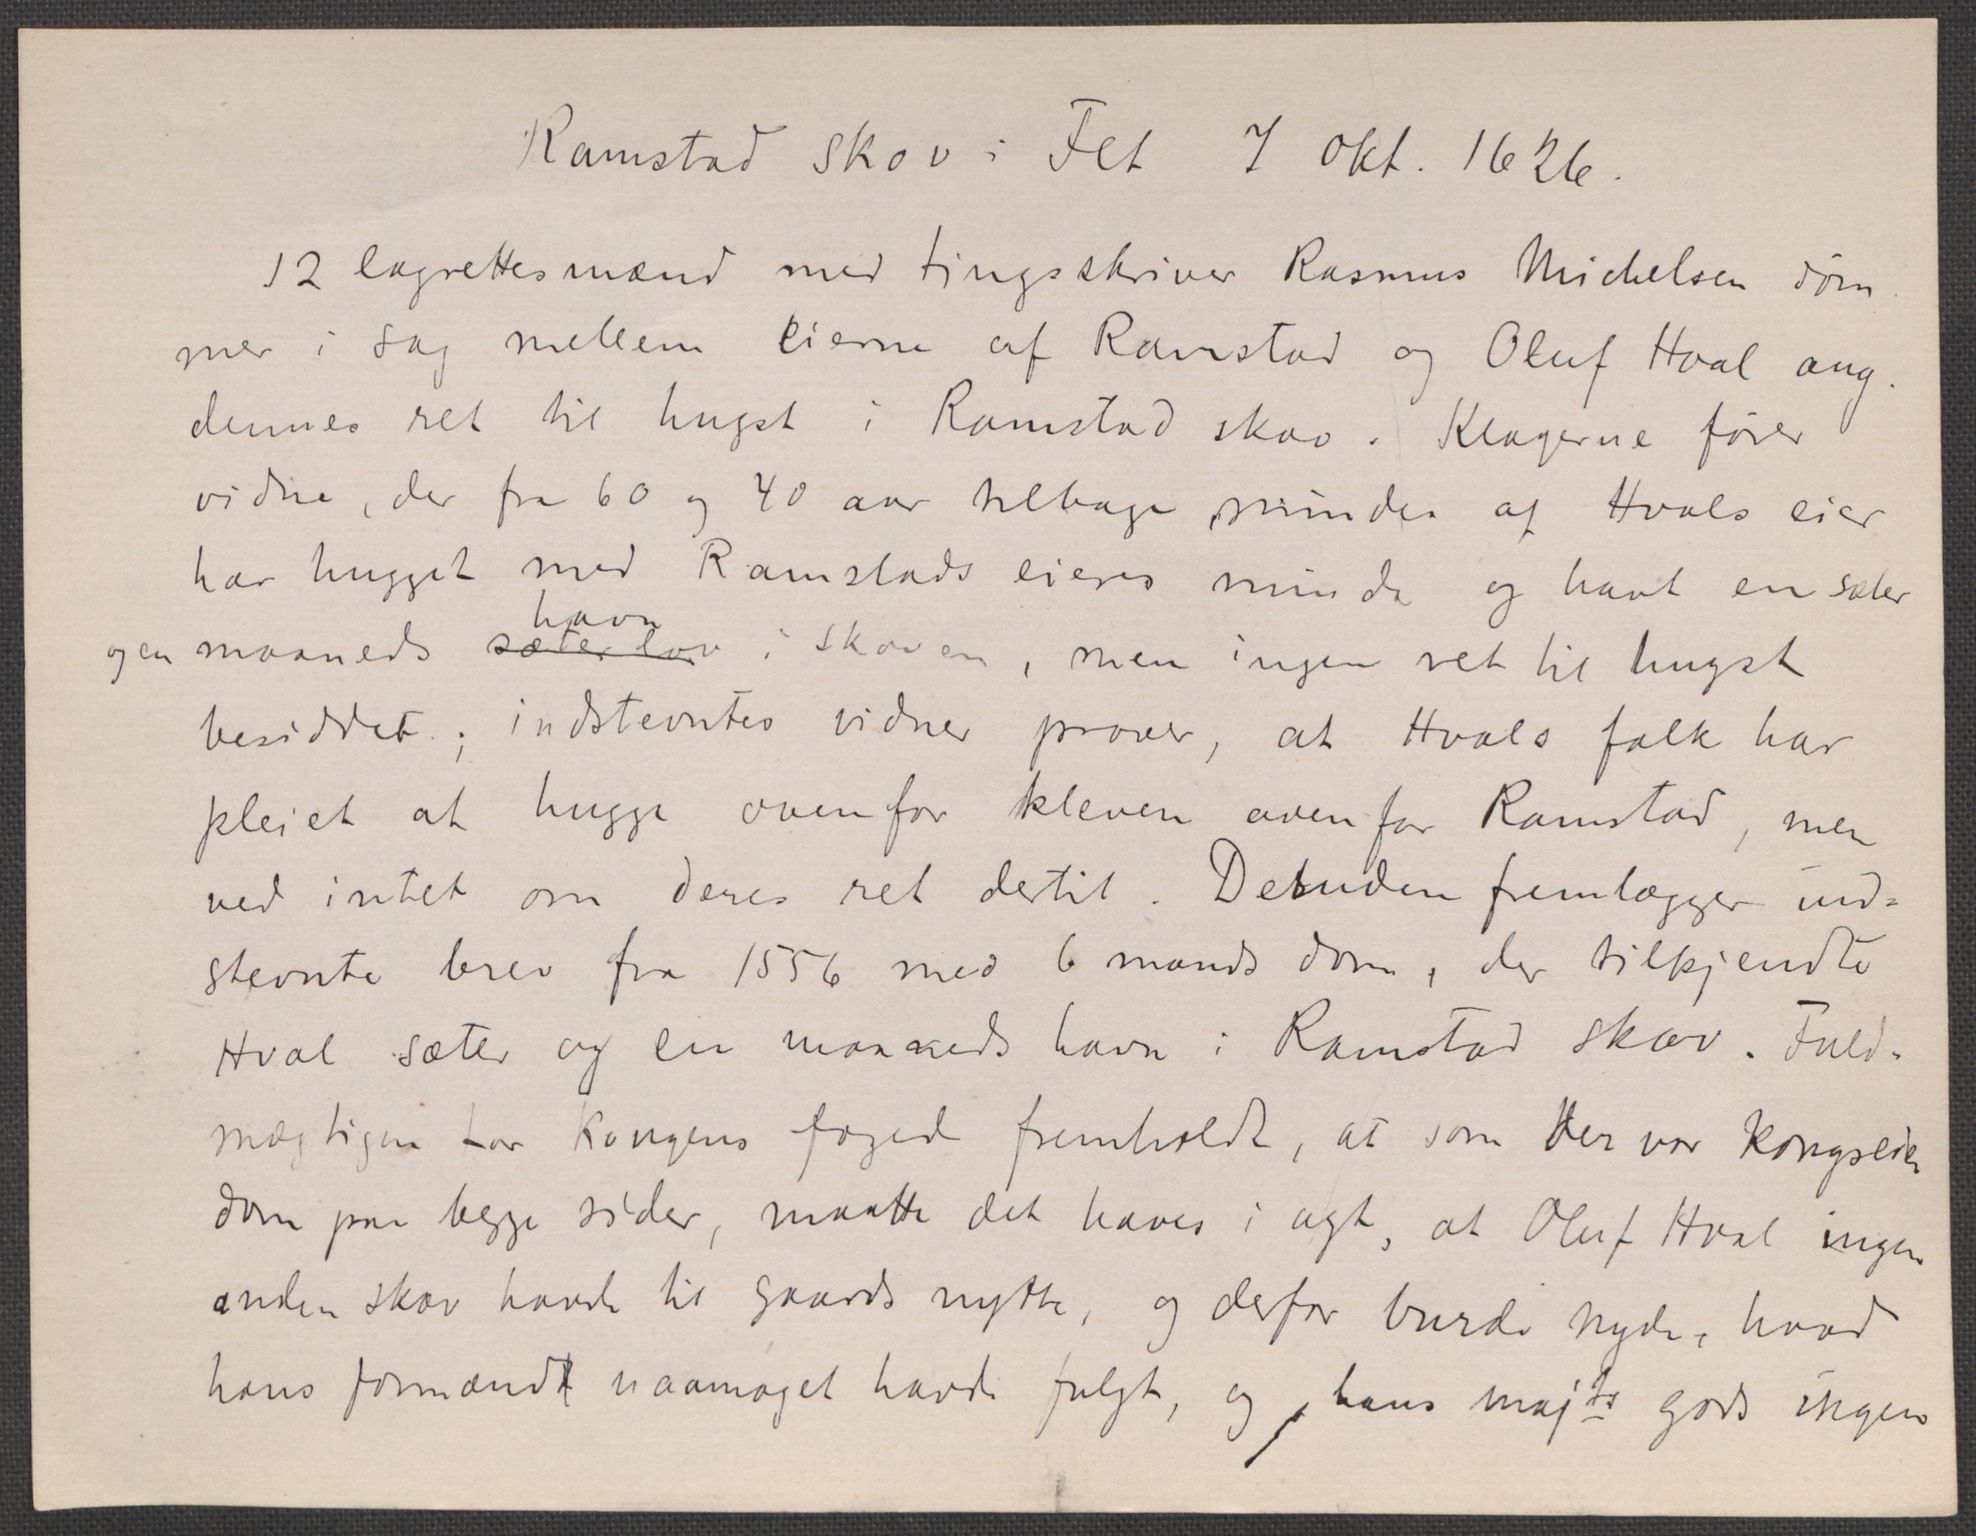 Ramstad skov i Fet 7 okt. 1626.
12 lagrettesmænd med tingsskriver Rasmus Michelsen døm
mer i sag mellem eierne af Ramstad og Oluf Hval ang.
dennes ret til hugst i Ramstad skov. Klagerne fører
vidne, der fra 60 og 40 aar tilbage mindes at Hvals eier
har hugget med Ramstads eieres minde og havt en sæter
og en maaneds havn i skoven, men ingen ret til hugst
besiddet; indstevntes vidner prover, at Hvals folk har
pleiet at hugge ovenfor kleven ovenfor Ramstad, men
ved intet om deres ret dertil. Desuden fremlægger ind=
stevnte brev fra 1556 med 6 mands dom, der tilkjendte
Hval sæter og en maaneds havn i Ramstad skov. Fuld=
mægtigen for Kongens foged fremholdt, at som der var kongseien
dom paa begge sider, maatte det haves i agt, at Oluf Hval ingen
anden skov havde til gaards nytte, og derfor burde nyde, hvad
hans formænd uaamaget havde fulgt, og hans maj ts gods ingen